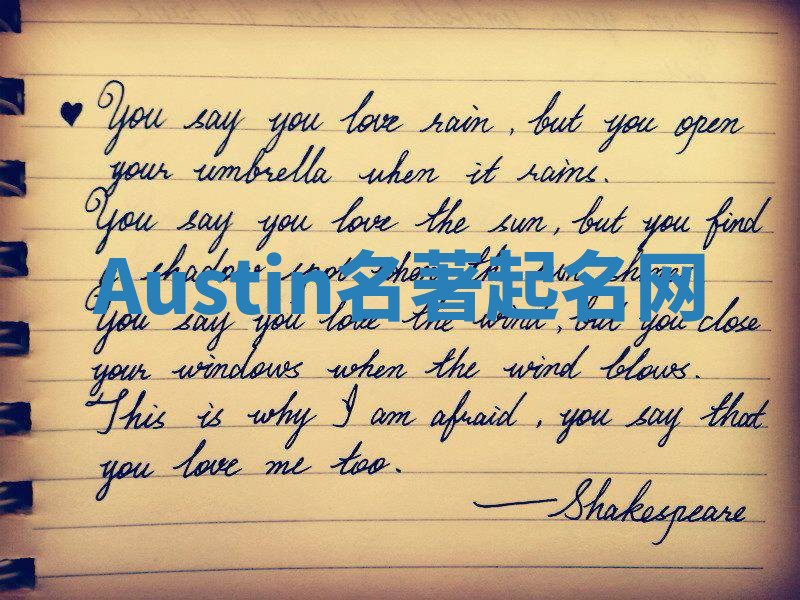 You say you love rain, but you open
your umbrella when it rains.
You say you love the sun, but you find
a shadow spot when the sun shines.
Austin名著起名网
You say you love the wind, but you close
your windows when the wind blows.
This is why I am afraid, you say that
you love me too.
—Shakespeare